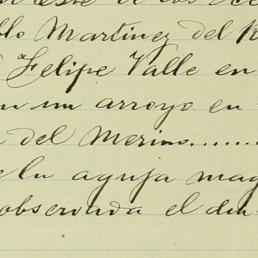 este de los
Martinez del R
Felipe Valle en
un arroyo en
del Merino........
la aguja mag
observada el dia